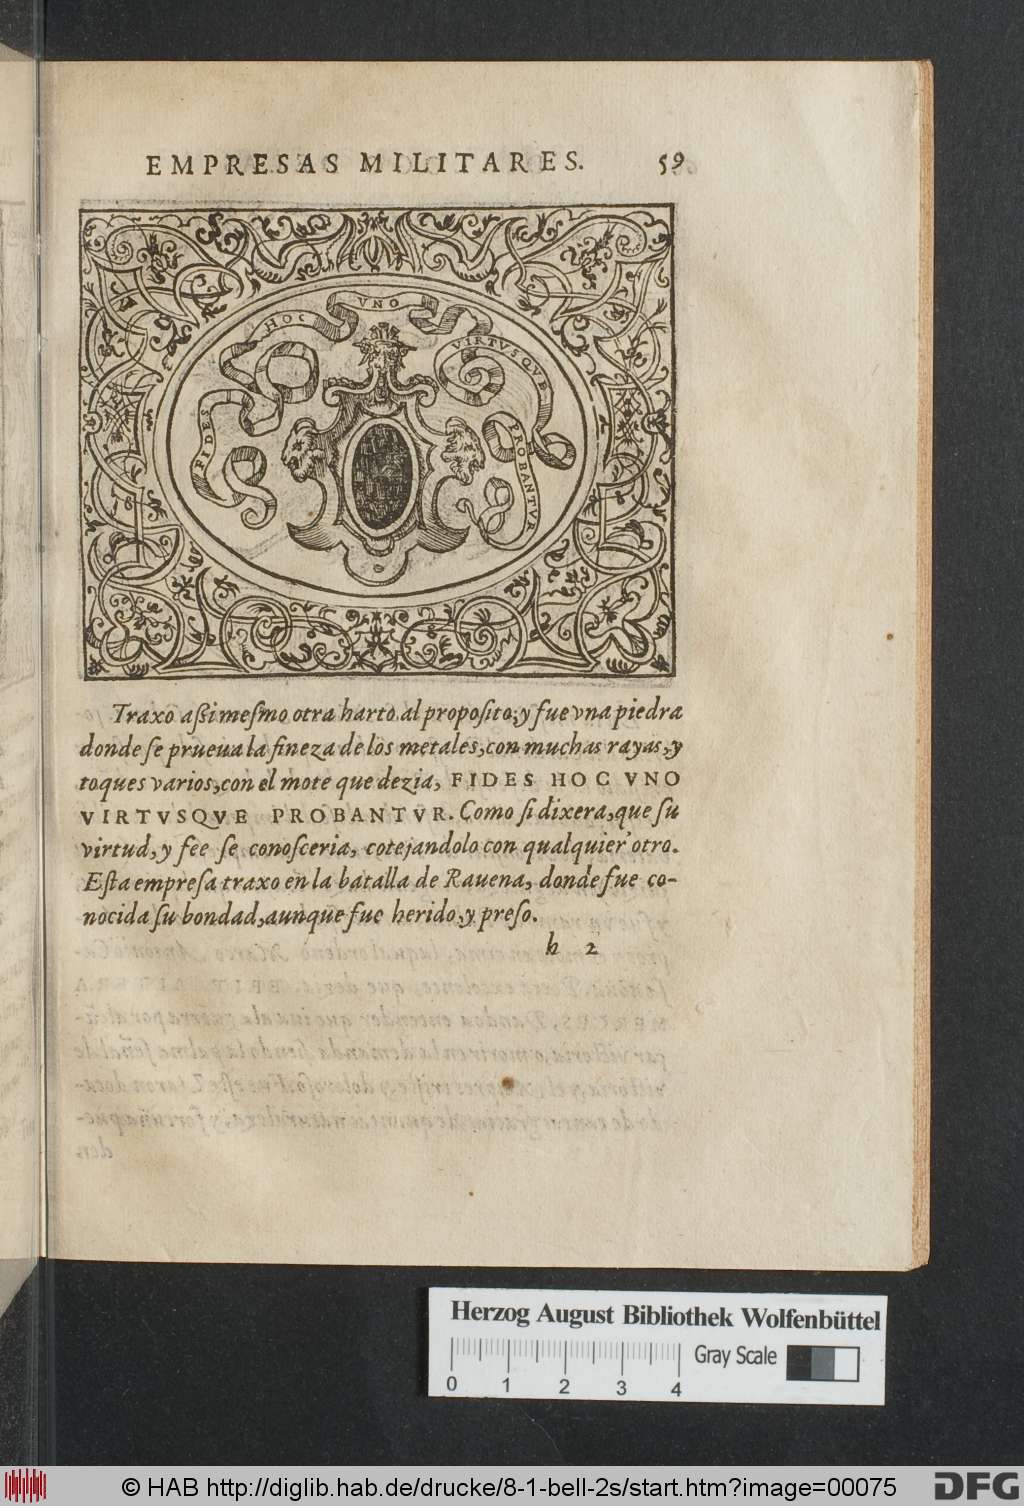 EMPRESAS MILITARES. 59
FIDES HOC VNO VIRTVSQVE PROBANTVR
Traxo aſsimeſmo otra harto al propoſito; y fue vna piedra
donde ſe prueua la fineza de los metales, con muchas rayas, y
toques varios, con el mote que dezia, FIDES HOC VNO
VIRTVSQVE PROBANTVR. Como ſi dixera, que ſu
virtud, y fee ſe conoſceria, cotejandolo con qualquier otro.
Eſta empreſa traxo en la batalla de Rauena, donde fue co-
nocida ſu bondad, aunque fue herido, y preſo.
h 2
Herzog August Bibliothek Wolfenbüttel
Gray Scale
0 1 2 3 4
© HAB http://diglib.hab.de/drucke/8-1-bell-2s/start.htm?image=00075
DFG